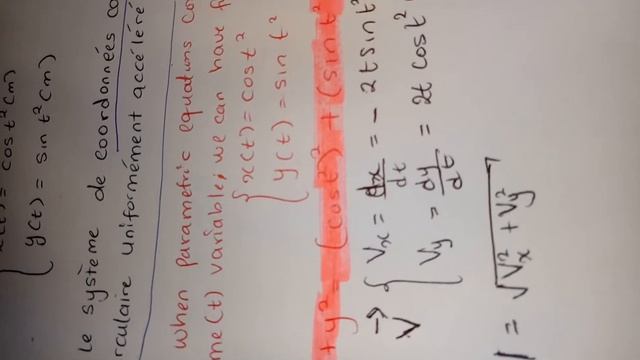 x(t) = cos t² (m)
y(t) = sin t² (m)
le système de coordonnées
uniformément accéléré
When parametric equations
(t) variable, we can have
x(t) = cos t²
y(t) = sin t²
+ y² = (cos t²)² + (sin t²
→ Vx = dx/dt = - 2t sin t²
V Vy = dy/dt = 2t cos t²
= √Vx² + Vy²